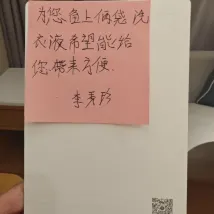 为您负上俩袋洗
衣液希望能给
您带来方便.
李秀珍